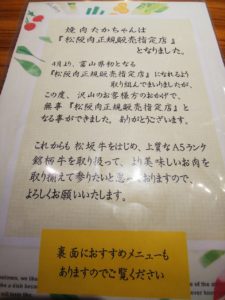 焼肉たかちゃんは
『松阪肉正規販売指定店』
となりました。
4月より、富山県初となる
『松阪肉正規販売指定店』になれるよう
取り組んでまいりましたが、
この度、沢山のお客様方のおかげで、
無事『松阪肉正規販売指定店』と
なる事ができました。ありがとうございます。
これからも松坂牛をはじめ、上質なA5ランク
銘柄牛を取り扱って、より美味しいお肉を
取り揃えて参りたいと思っておりますので、
よろしくお願いいたします。
裏面におすすめメニューも
ありますのでご覧ください